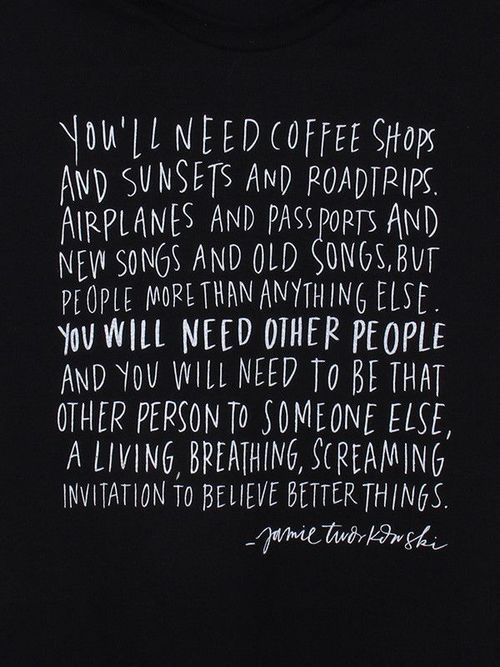 YOU'LL NEED COFFEE SHOPS
AND SUNSETS AND ROADTRIPS.
AIRPLANES AND PASSPORTS AND
NEW SONGS AND OLD SONGS, BUT
PEOPLE MORE THAN ANYTHING ELSE.
YOU WILL NEED OTHER PEOPLE
AND YOU WILL NEED TO BE THAT
OTHER PERSON TO SOMEONE ELSE,
A LIVING, BREATHING, SCREAMING
INVITATION TO BELIEVE BETTER THINGS.
- Jamie tworkowski